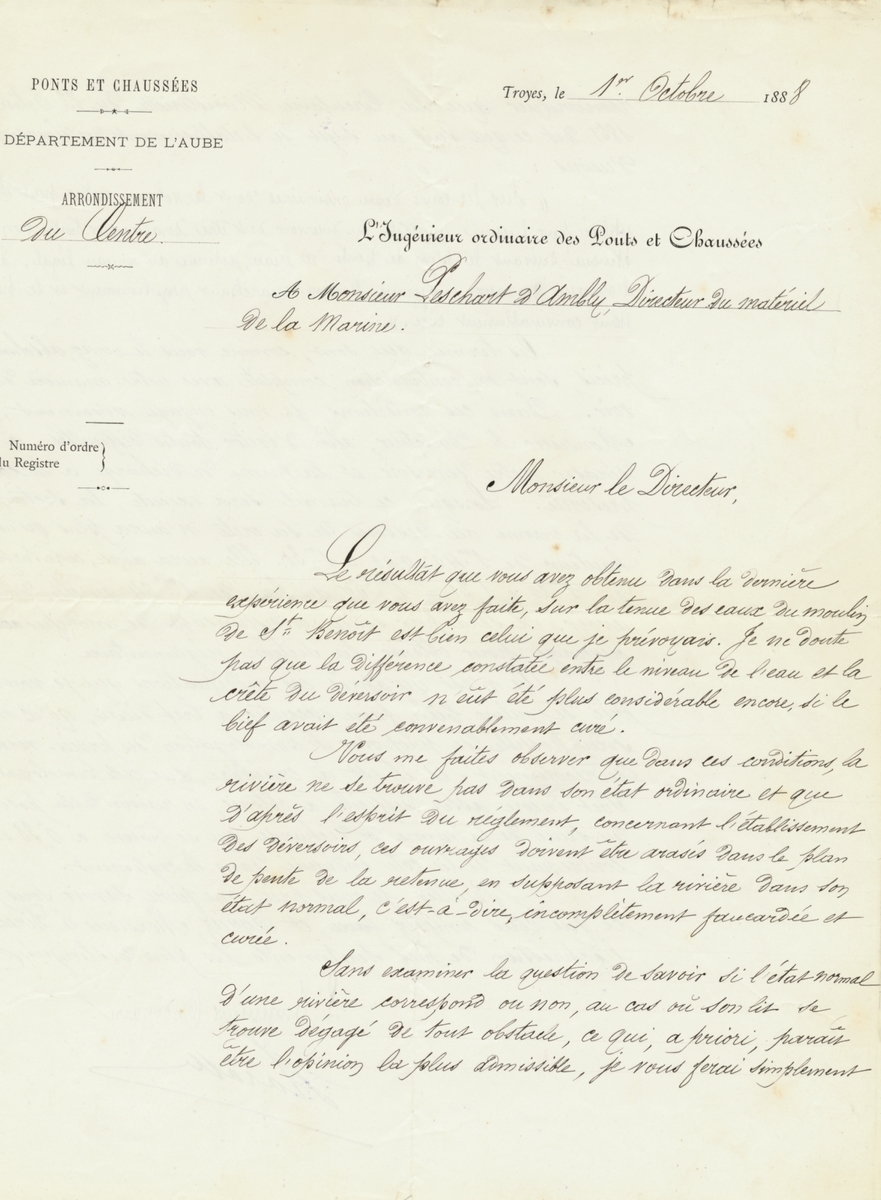 PONTS ET CHAUSSÉES
DÉPARTEMENT DE L'AUBE
ARRONDISSEMENT
du Centre.
Troyes, le 1er Octobre 1888
L'Ingénieur ordinaire des Ponts et Chaussées
A Monsieur Peschart d'Ambly, Directeur du matériel
de la Marine.
Numéro d'ordre
du Registre
Monsieur le Directeur,
Le résultat que vous avez obtenu dans la dernière
expérience que vous avez faite, sur la tenue des eaux du moulin
de St. Benoît est bien celui que je prévoyais. Je ne doute
pas que la différence constatée entre le niveau de l'eau et la
crête du déversoir n'eût été plus considérable encore, si le
bief avait été convenablement curé.
Vous me faites observer que dans ces conditions, la
rivière ne se trouve pas dans son état ordinaire et que
d'après l'esprit du réglement, concernant l'établissement
des déversoirs, ces ouvrages doivent être arasés dans le plan
de pente de la retenue, en supposant la rivière dans son
état normal, c'est-à-dire, incomplètement faucardée et
curée.
Sans examiner la question de savoir si l'état normal
d'une rivière correspond ou non, au cas où son lit se
trouve dégagé de tout obstacle, ce qui, a priori, paraît
être l'opinion la plus admissible, je vous ferai simplement